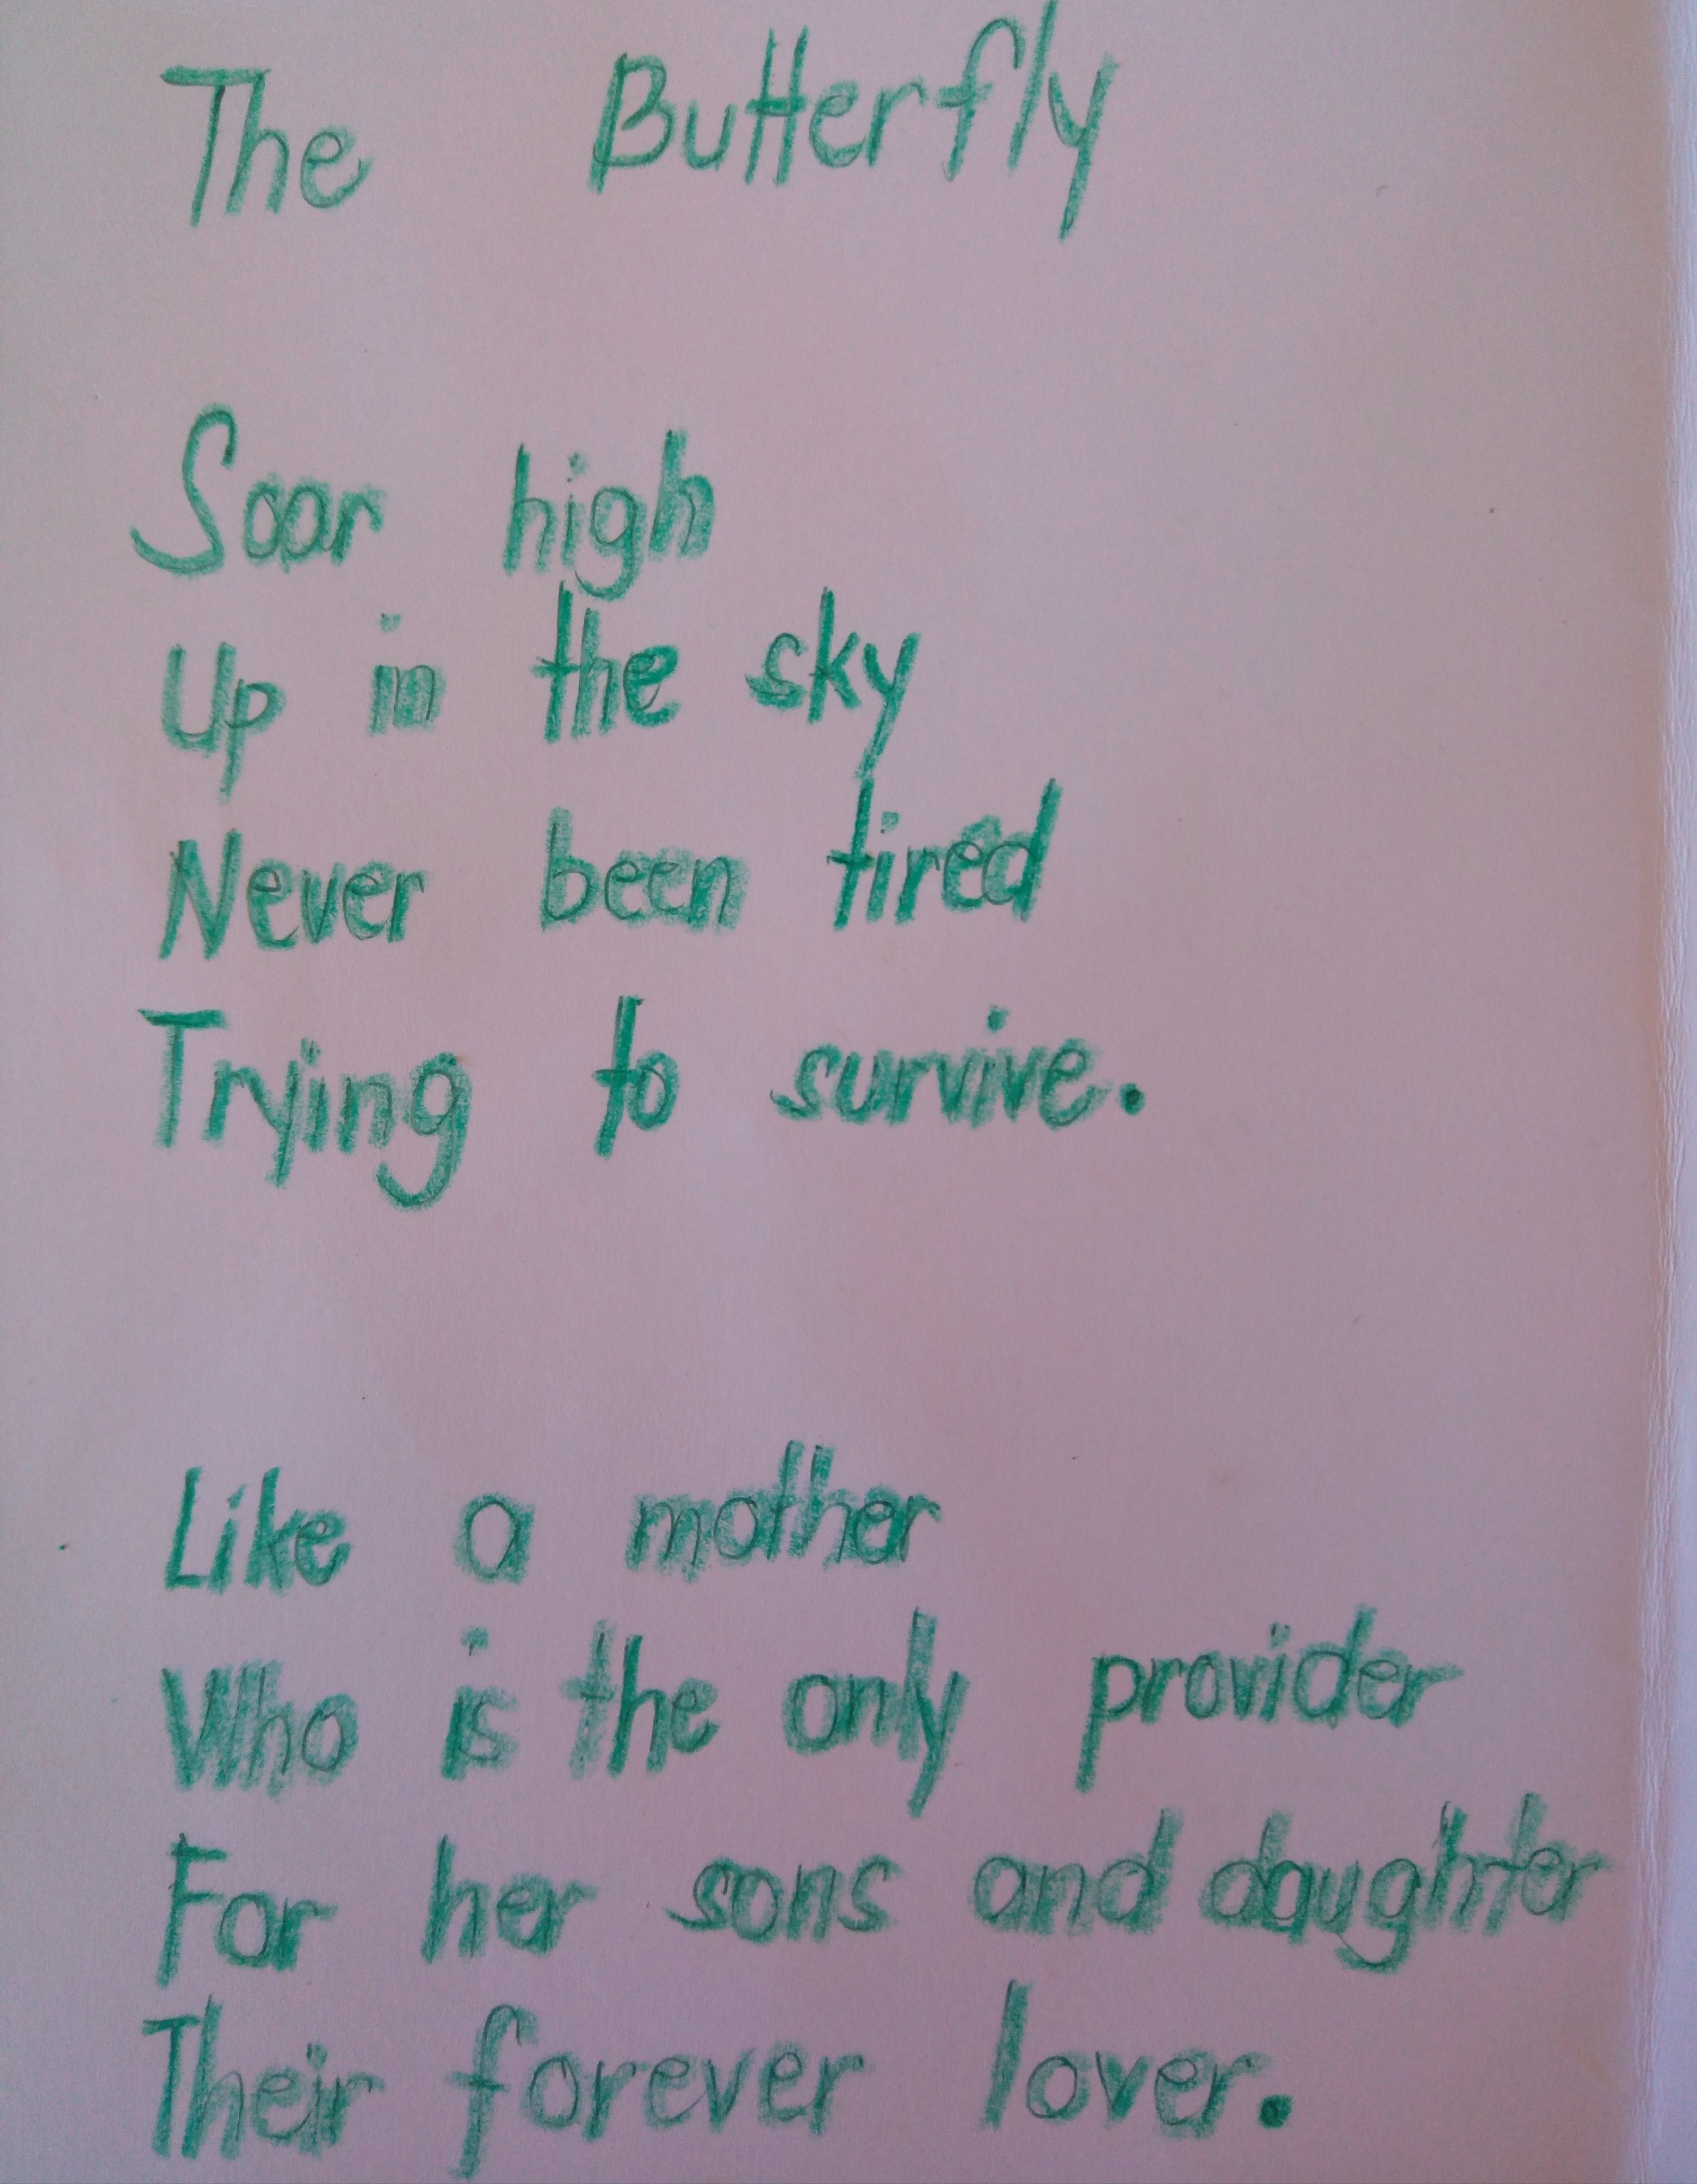 The Butterfly
Soar high
Up in the sky
Never been tired
Trying to survive.
Like a mother
Who is the only provider
For her sons and daughter
Their forever lover.